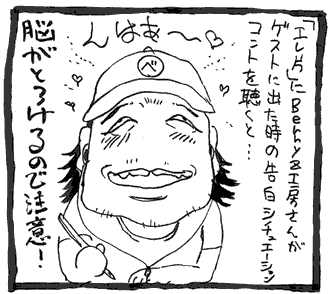 「エレ片」にBerryz工房さんが
ゲストに出た時の告白シチュエーション
コントを聴くと…
んはあ〜♡
ベ
脳がとろけるので注意!